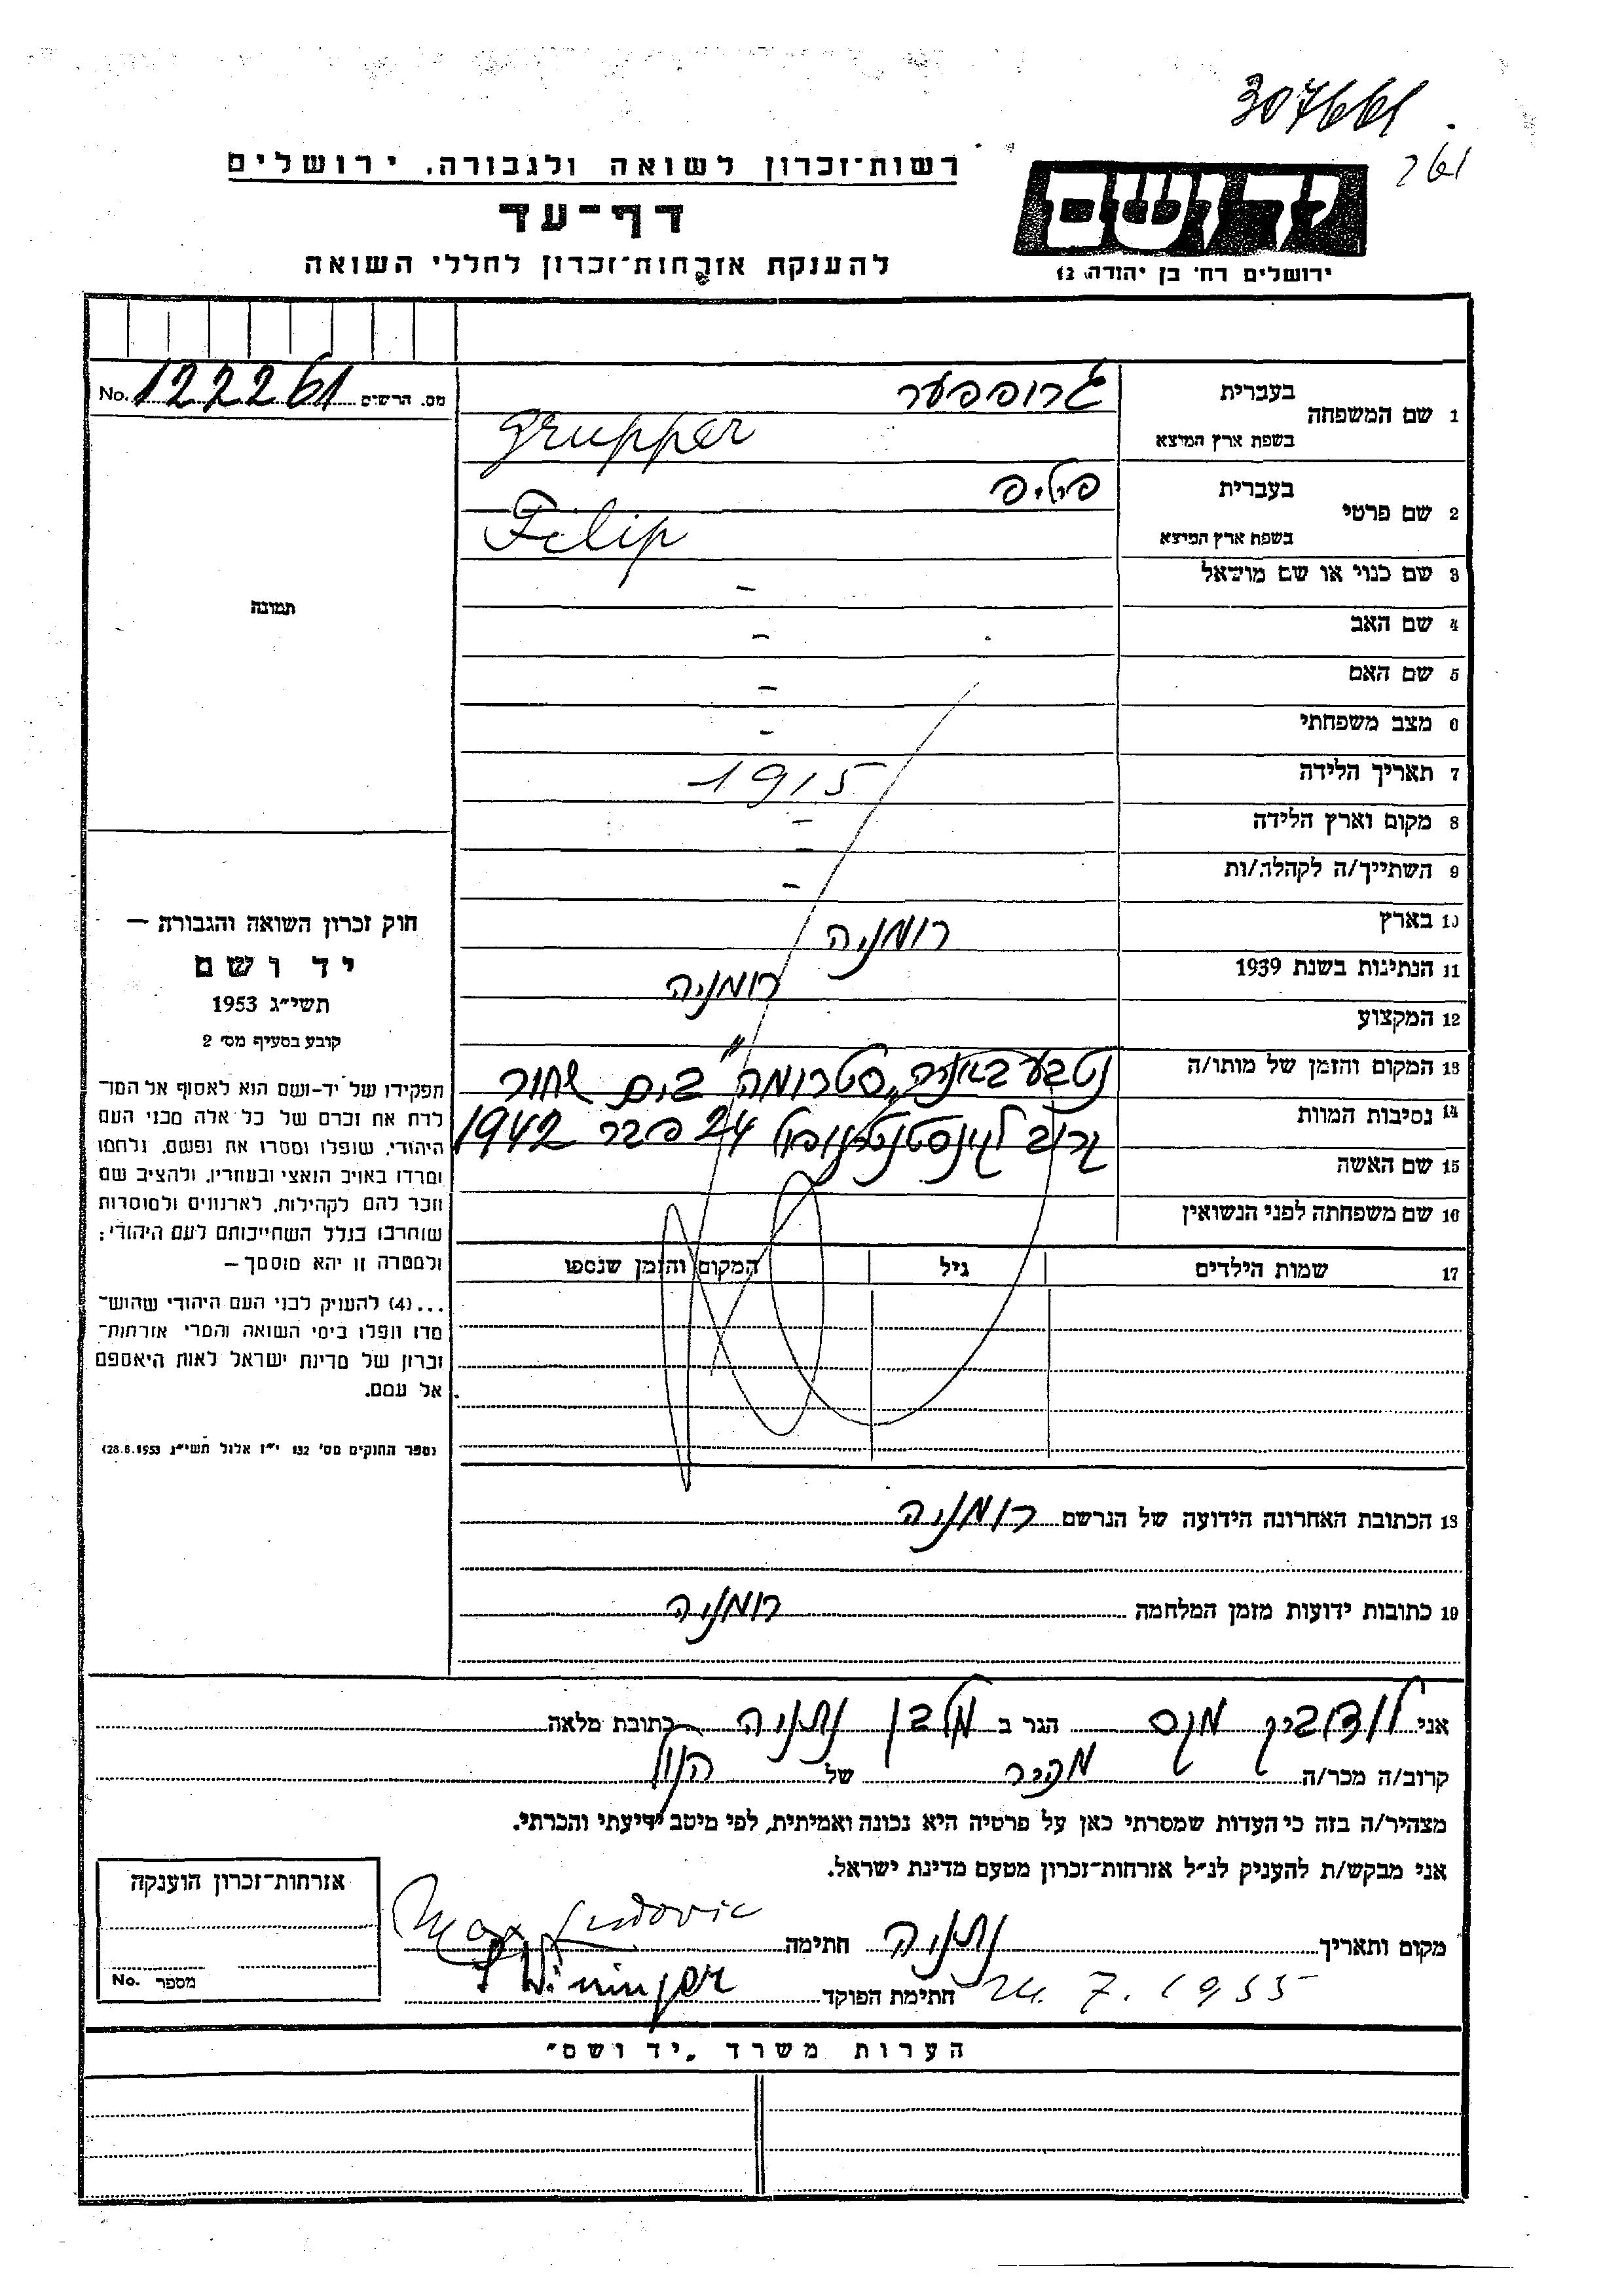 307661
261
רשות־זכרון לשואה ולגבורה, ירושלים
דף־עד
להענקת אזרחות־זכרון לחללי השואה
יד ושם
ירושלים רח' בן יהודה 12
No. 122261 מס. הרשים
תמונה
1 שם המשפחה
בעברית גרופפער
בשפת ארץ המוצא Grupper
2 שם פרטי
בעברית פיליפ
בשפת ארץ המוצא Filip
3 שם כנוי או שם מושאל -
4 שם האב -
5 שם האם -
6 מצב משפחתי -
7 תאריך הלידה 1915
8 מקום וארץ הלידה -
9 השתייך/ה לקהלה/ות -
10 בארץ רומניה
11 הנתינות בשנת 1939 רומניה
12 המקצוע
13 המקום והזמן של מותו/ה נטבע באניה „סטרומה" בים שחור
14 נסיבות המוות קרוב לקונסטנטינופול 24 פבר 1942
15 שם האשה
16 שם משפחתה לפני הנשואין
17 שמות הילדים גיל המקום והזמן שנספו
חוק זכרון השואה והגבורה –
יד ושם
תשי״ג 1953
קובע בסעיף מס' 2
תפקידו של יד-ושם הוא לאסוף אל המו־
לדת את זכרם של כל אלה מבני העם
היהודי, שנפלו ומסרו את נפשם, נלחמו
ומרדו באויב הנאצי ובעוזריו, ולהציב שם
וזכר להם לקהילות, לארגונים ולמוסדות
שוחרבו בגלל השתייכותם לעם היהודי;
ולמטרה זו יהא מוסמך –
...(4) להעניק לבני העם היהודי שהוש־
מדו ונפלו בימי השואה והמרי אזרחות־
זכרון של מדינת ישראל לאות היאספם
אל עמם.
(ספר החוקים מס' 132 י״ז אלול תשי״ג 28.8.1953)
18 הכתובת האחרונה הידועה של הנרשם רומניה
19 כתובות ידועות מזמן המלחמה רומניה
אני לודוביק מקס הגר ב מלבן נתניה כתובת מלאה
קרוב/ה מכר/ה מכיר של הנ״ל
מצהיר/ה בזה כי העדות שמסרתי כאן על פרטיה היא נכונה ואמיתית, לפי מיטב ידיעתי והכרתי.
אני מבקש/ת להעניק לנ״ל אזרחות־זכרון מטעם מדינת ישראל.
מקום ותאריך נתניה חתימה Max Ludovic
24. 7. 1955 חתימת הפוקד Wininger
אזרחות־זכרון הוענקה
No. מספר
הערות משרד „יד ושם״